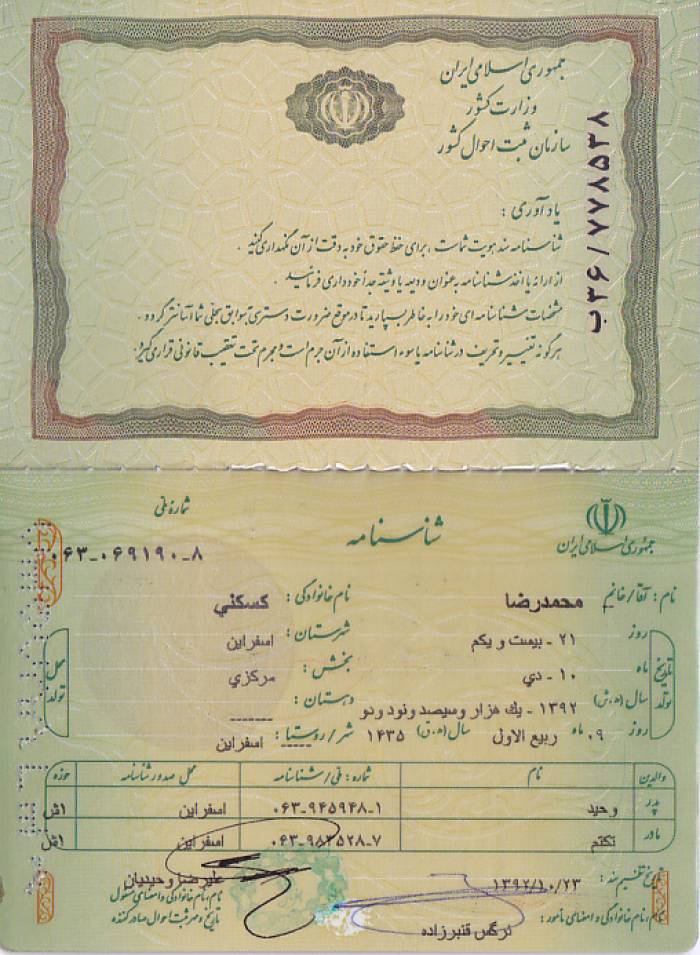 جمهوری اسلامی ایران
وزارت کشور
سازمان ثبت احوال کشور
ب۳۶/۷۷۸۵۳۸
یادآوری :
شناسنامه سند هویت شماست ، برای حفظ حقوق خود به دقت از آن نگهداری کنید .
از ارائه یا اخذ شناسنامه به عنوان ودیعه یا وثیقه جداً خودداری فرمائید .
مشخصات شناسنامه ای خود را به خاطر بسپارید تا در موقع ضرورت دسترسی بسوابق سجلی شما آسانتر گردد .
هرگونه تغییر و تحریف در شناسنامه یا سوء استفاده از آن جرم است و مجرم تحت تعقیب قانونی قرار می گیرد .
جمهوری اسلامی ایران
شناسنامه
شماره ملی
۰۶۳-۰۶۹۱۹۰-۸
نام : آقا/خانم محمدرضا نام خانوادگی : کسکني
تاریخ تولد
روز ۲۱ - بیست و یکم
ماه ۱۰ - دي
سال (ه.ش) ۱۳۹۲ - یك هزار وسیصد ونود ودو
روز ۰۹ ماه ربیع الاول سال (ه.ق) ۱۴۳۵
محل تولد
شهرستان : اسفراین
بخش : مرکزي
دهستان : ------
شهر/روستا : ----- اسفراین
والدین نام شماره : ملی/شناسنامه محل صدور شناسنامه حوزه
پدر وحید ۰۶۳-۹۴۵۹۴۸-۱ اسفراین اش
مادر تکتم ۰۶۳-۹۵۳۵۲۸-۷ اسفراین اش
تاریخ تنظیم سند : ۱۳۹۲/۱۰/۲۳
نام، نام خانوادگی و امضای مأمور : نرگس قنبرزاده
علیرضا وحیدیان
نام، نام خانوادگی و امضای مسئول
تاریخ و مهر ثبت احوال صادر کننده